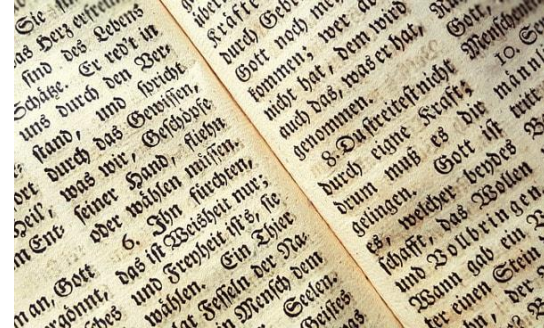 Sie
das Herz erfreun
sind des Lebens
Schätze. Er red't in
uns durch den Ver⸗
stand, und spricht
durch das Gewissen,
was wir, Geschöpfe
seiner Hand, fliehn
oder wählen müssen.
6. Ihn fürchten,
das ist Weisheit nur;
und Freyheit ists, sie
wählen. Ein Thier
Fesseln der Na⸗
Mensch dem
Seelen.
Geistes
ort
Heil,
Ent⸗
man, Gott
Kräfte
durch Gebet
Gott noch mehr
kommen; wer
nicht hat, dem wird
auch das, was er hat,
genommen.
8. Du streitest nicht
durch eigne Kraft;
drum muß es dir
gelingen. Gott ist
es, welcher beydes
schafft, das Wollen
und Vollbringen.
Wann gab ein
einen Stein
der
Gott,
Menschen
10.